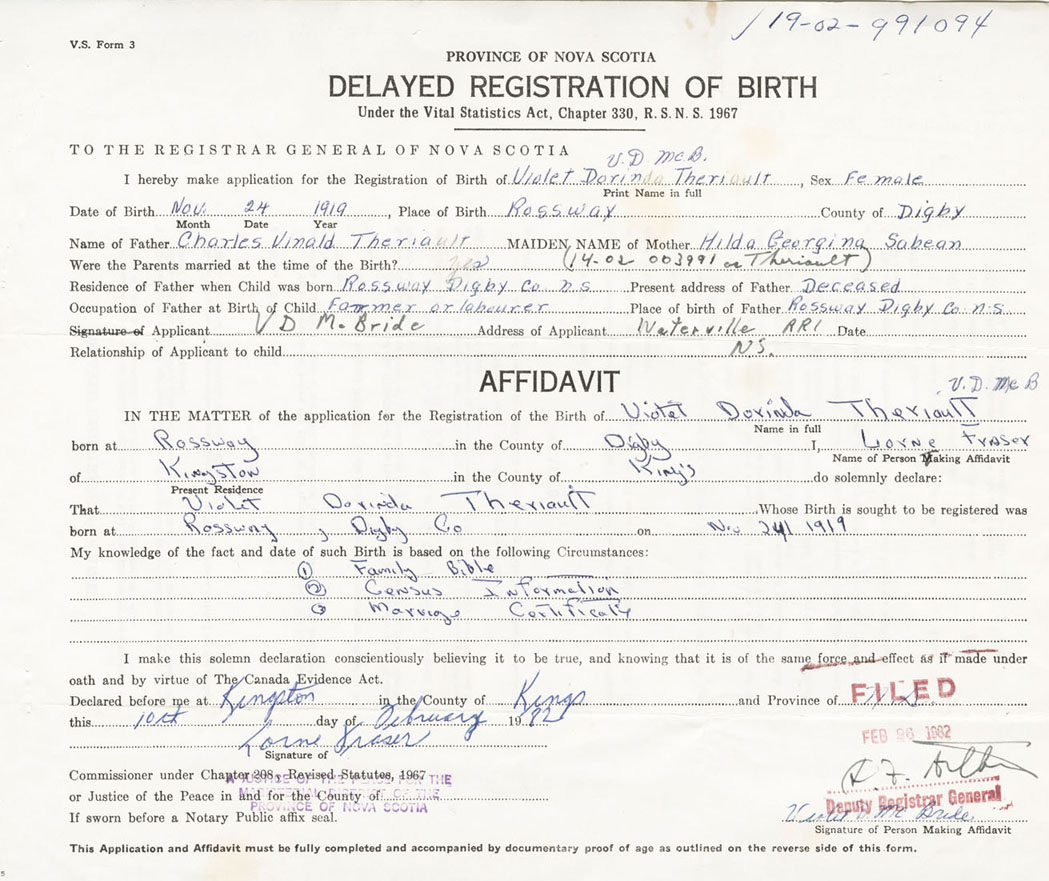 19-02-991094
V.S. Form 3
PROVINCE OF NOVA SCOTIA
DELAYED REGISTRATION OF BIRTH
Under the Vital Statistics Act, Chapter 330, R.S.N.S. 1967
TO THE REGISTRAR GENERAL OF NOVA SCOTIA
V.D McB.
I hereby make application for the Registration of Birth of Violet Dorinda Theriault, Sex Female
Print Name in full
Date of Birth Nov. 24 1919, Place of Birth Rossway County of Digby
Month Date Year
Name of Father Charles Vinald Theriault MAIDEN NAME of Mother Hilda Georgina Sabean
Were the Parents married at the time of the Birth? yes (14-02 003991 as Theriault)
Residence of Father when Child was born Rossway Digby Co n.s Present address of Father Deceased
Occupation of Father at Birth of Child Farmer or labourer Place of birth of Father Rossway Digby Co n.s
Signature of Applicant V D McBride Address of Applicant Waterville RR1 Date
Relationship of Applicant to child N.S.
AFFIDAVIT
V.D. McB
IN THE MATTER of the application for the Registration of the Birth of Violet Dorinda Theriault
Name in full
born at Rossway in the County of Digby I, Lorne Fraser
Name of Person Making Affidavit
of Kingston in the County of King's do solemnly declare:
Present Residence
That Violet Dorinda Theriault Whose Birth is sought to be registered was
born at Rossway, Digby Co on Nov 24 1919
My knowledge of the fact and date of such Birth is based on the following Circumstances:
① Family Bible
② Census Information
③ Marriage Certificate
I make this solemn declaration conscientiously believing it to be true, and knowing that it is of the same force and effect as if made under
oath and by virtue of The Canada Evidence Act.
Declared before me at Kingston in the County of Kings and Province of N.S.
FILED
this 10th day of February 1982
FEB 26 1982
Lorne Fraser
Signature of
Commissioner under Chapter 208, Revised Statutes, 1967
A JUSTICE OF THE PEACE FOR THE
or Justice of the Peace in and for the County of
PROVINCE OF NOVA SCOTIA
Deputy Registrar General
If sworn before a Notary Public affix seal.
Violet D McBride
Signature of Person Making Affidavit
This Application and Affidavit must be fully completed and accompanied by documentary proof of age as outlined on the reverse side of this form.
5